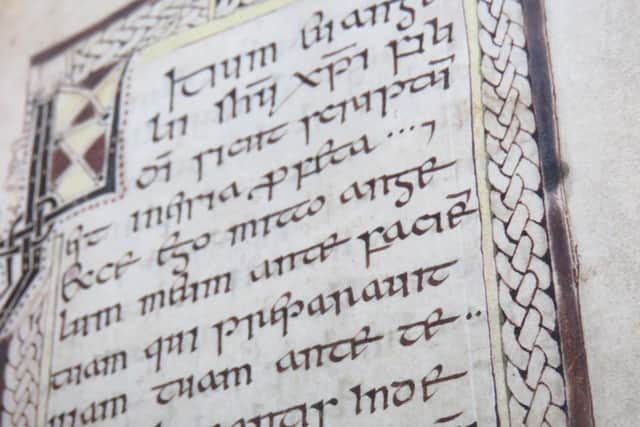 itium euange
lii ihū xp̄i fili
dī sicut scriptū
est inessia profeta...,
Ecce Ego mitto ange
lum meum ante faciē
tuam qui preparauit
uiam tuam ante te..
inde